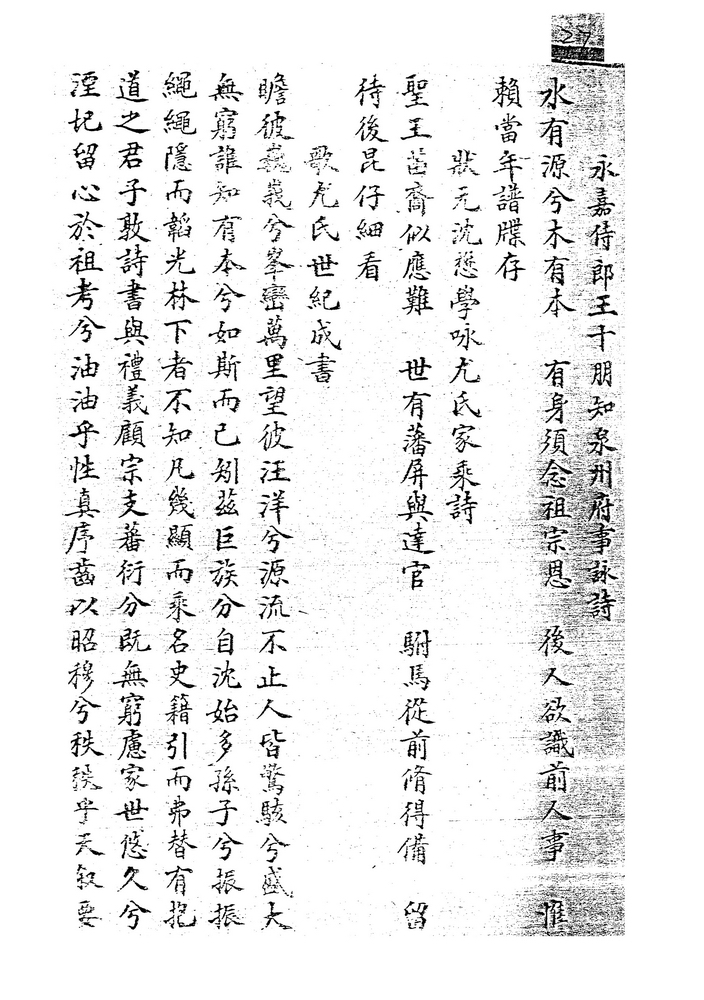 27
永嘉侍郎王十朋知泉州府事詠詩
水有源兮木有本　有身須念祖宗恩　後人欲識前人事　惟
賴當年譜牒存
狀元沈㦤學咏尤氏家乘詩
聖王苗裔似應難　世有藩屏與達官　駙馬從前脩得備　留
待後昆仔細看
歌尤氏世紀成書
瞻彼峩峩兮峯巒萬里望彼汪洋兮源流不止人皆驚駭兮盛大
無窮誰知有本兮如斯而已矧茲巨族分自沈始多孫子兮振振
繩繩隱而韜光林下者不知凡幾顯而乘名史籍引而弗替有抱
道之君子敦詩書與禮義顧宗支蕃衍分既無窮慮家世悠久兮
湮圮留心於祖考兮油油乎性真序齒以昭穆兮秩秩乎天叙要